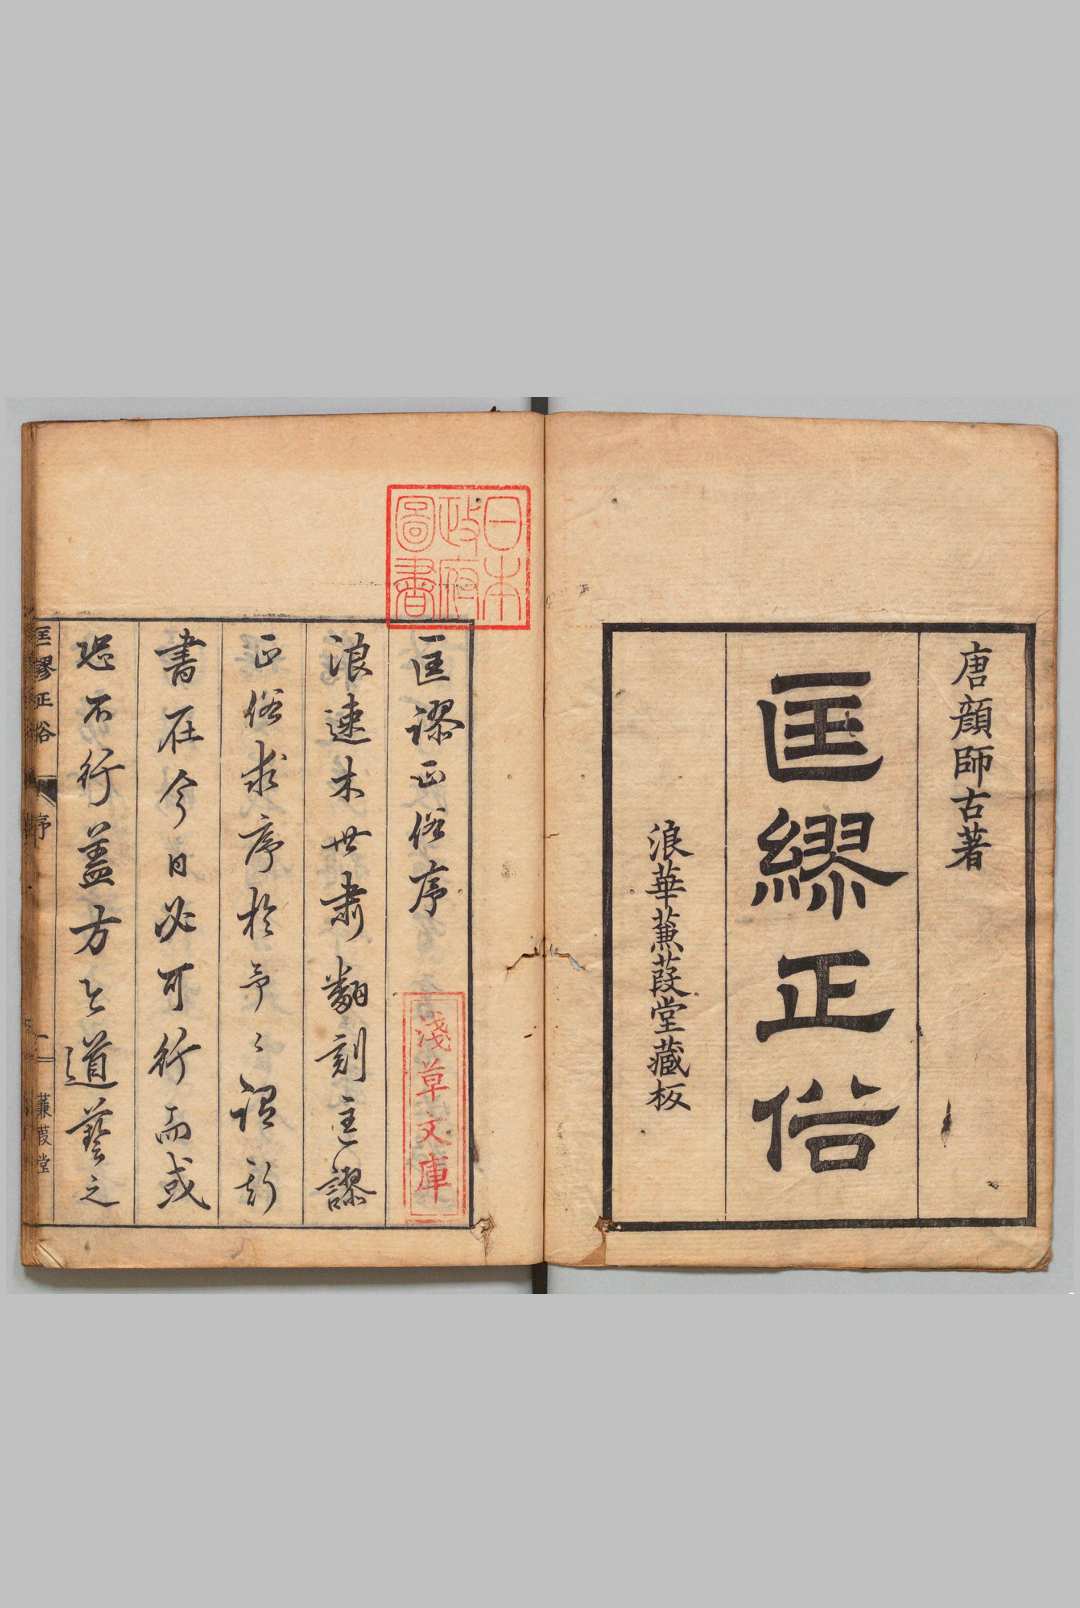 唐顔師古著
匡繆正俗
浪華蒹葭堂藏板
日本
政府
圖書
匡謬正俗序
淺草文庫
浪速木世肅翻刻匡謬
正俗求序於予々謂斯
書在今日必可行而或
恐不行蓋方今道藝之
匡謬正俗 序 一 蒹葭堂